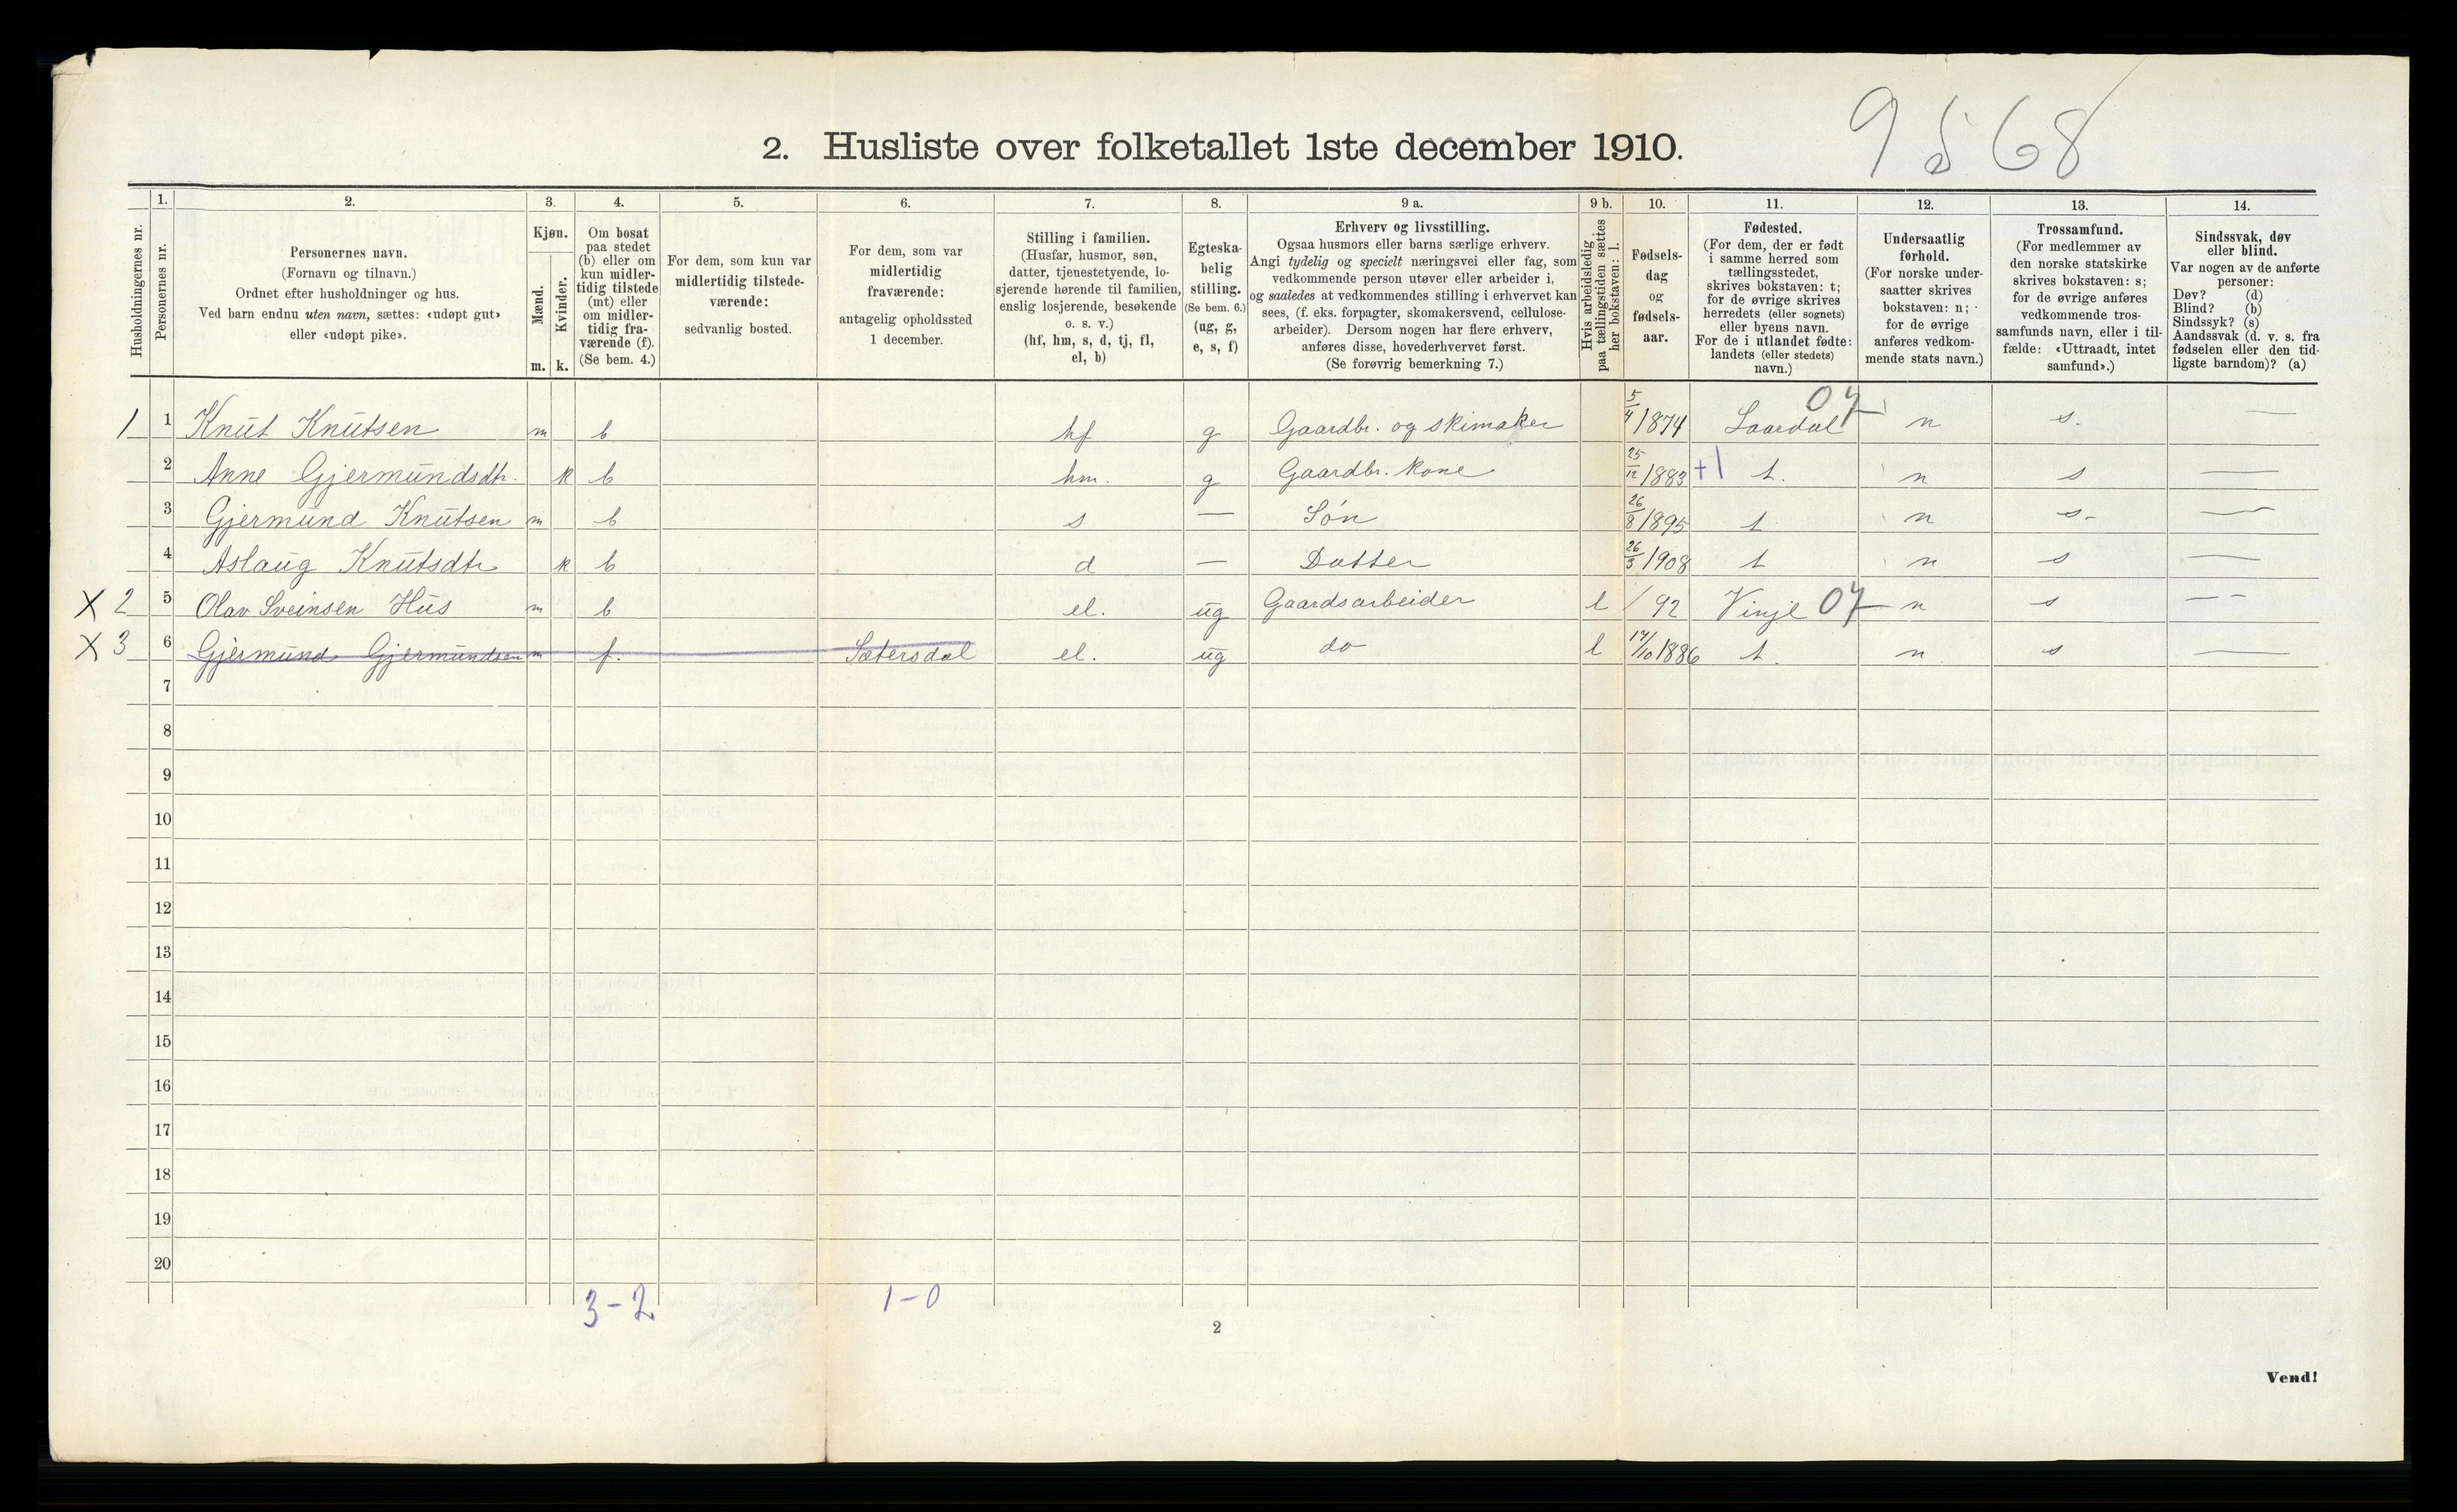 9568
2. Husliste over folketallet 1ste december 1910.
Husholdningernes nr.
1. Personernes nr.
2. Personernes navn.
(Fornavn og tilnavn.)
Ordnet efter husholdninger og hus.
Ved barn endnu uten navn, sættes: «udøpt gut»
eller «udøpt pike».
3. Kjøn.
Mænd. Kvinder.
m. k.
4. Om bosat
paa stedet
(b) eller om
kun midler-
tidig tilstede
(mt) eller
om midler-
tidig fra-
værende (f).
(Se bem. 4.)
5. For dem, som kun var
midlertidig tilstede-
værende:
sedvanlig bosted.
6. For dem, som var
midlertidig
fraværende:
antagelig opholdssted
1 december.
7. Stilling i familien.
(Husfar, husmor, søn,
datter, tjenestetyende, lo-
sjerende hørende til familien,
enslig losjerende, besøkende
o. s. v.)
(hf, hm, s, d, tj, fl,
el, b)
8. Egteska-
belig
stilling.
(Se bem. 6.)
(ug, g,
e, s, f)
9 a. Erhverv og livsstilling.
Ogsaa husmors eller barns særlige erhverv.
Angi tydelig og specielt næringsvei eller fag, som
vedkommende person utøver eller arbeider i,
og saaledes at vedkommendes stilling i erhvervet kan
sees, (f. eks. forpagter, skomakersvend, cellulose-
arbeider). Dersom nogen har flere erhverv,
anføres disse, hovederhvervet først.
(Se forøvrig bemerkning 7.)
9 b. Hvis arbeidsledig
paa tællingstiden sættes
her bokstaven: l.
10. Fødsels-
dag
og
fødsels-
aar.
11. Fødested.
(For dem, der er født
i samme herred som
tællingsstedet,
skrives bokstaven: t;
for de øvrige skrives
herredets (eller sognets)
eller byens navn.
For de i utlandet fødte:
landets (eller stedets)
navn.)
12. Undersaatlig
forhold.
(For norske under-
saatter skrives
bokstaven: n;
for de øvrige
anføres vedkom-
mende stats navn.)
13. Trossamfund.
(For medlemmer av
den norske statskirke
skrives bokstaven: s;
for de øvrige anføres
vedkommende tros-
samfunds navn, eller i til-
fælde: «Uttraadt, intet
samfund».)
14. Sindssvak, døv
eller blind.
Var nogen av de anførte
personer:
Døv? (d)
Blind? (b)
Sindssyk? (s)
Aandssvak (d. v. s. fra
fødselen eller den tid-
ligste barndom)? (a)
1 1 Knut Knutsen m b hf g Gaardbr. og skimaker 5/4 1874 Laardal 07 n s. —
2 Anne Gjermundsdtr. k b hm. g Gaardbr. kone 25/12 1883 +1 t. n s —
3 Gjermund Knutsen m b s — Søn 26/8 1895 t n s —
4 Aslaug Knutsdtr k b d — Datter 26/3 1908 t n s —
X 2 5 Olav Sveinsen Hus m b el. ug Gaardsarbeider l / 92 Vinje 07 n s — –
X 3 6 Gjermund Gjermundsen m f. Sætersdal el. ug do l 14/10 1886 t. n s —
7
8
9
10
11
12
13
14
15
16
17
18
19
20
3-2 1-0
2
Vend!